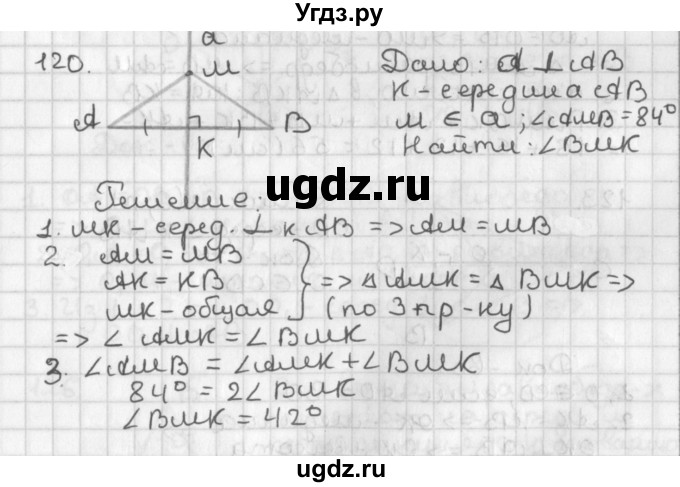 Угдз.ру
120.
a
M
A
B
K
Дано: a ⊥ AB
K - середина AB
M ∈ a; ∠AMB = 84°
Найти: ∠BMK
Решение:
1. MK - серед. ⊥ к AB => AM = MB
2. AM = MB
AK = KB
MK - общая
} => △AMK = △BMK =>
(по 3 пр-ку)
=> ∠AMK = ∠BMK
3. ∠AMB = ∠AMK + ∠BMK
84° = 2∠BMK
∠BMK = 42°
ugdz.ru
ugdz.ru